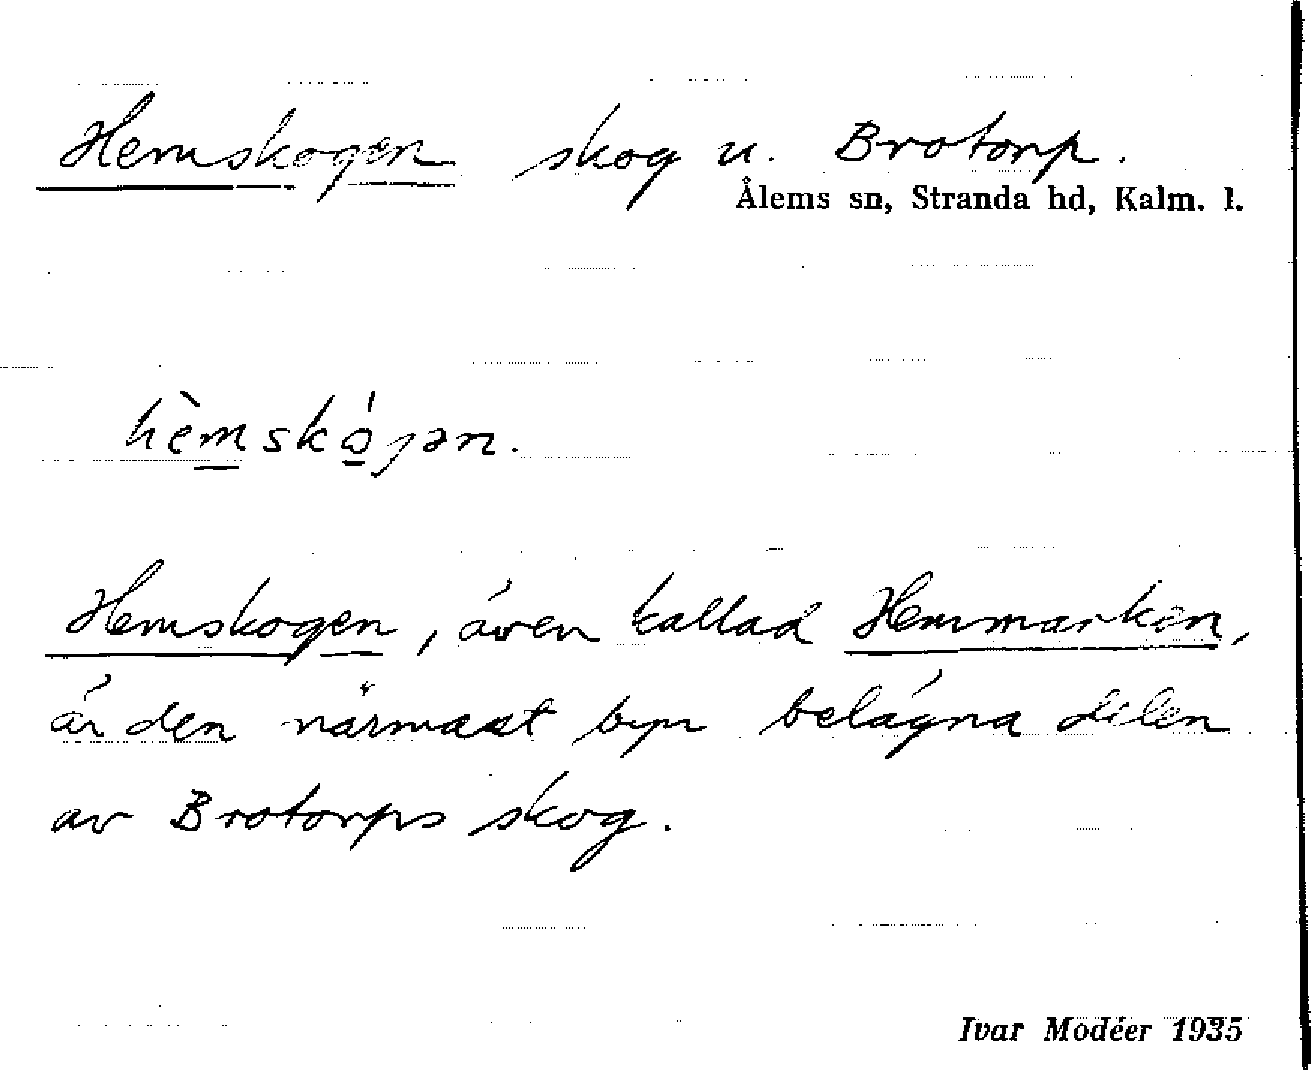 Hemskogen skog u. Brotorp.
Ålems sn, Stranda hd, Kalm. l.
hèmskó̠jən.
Hemskogen, även kallad Hemmarken,
är den närmast byn belägna delen
av Brotorps skog.
Ivar Modéer 1935